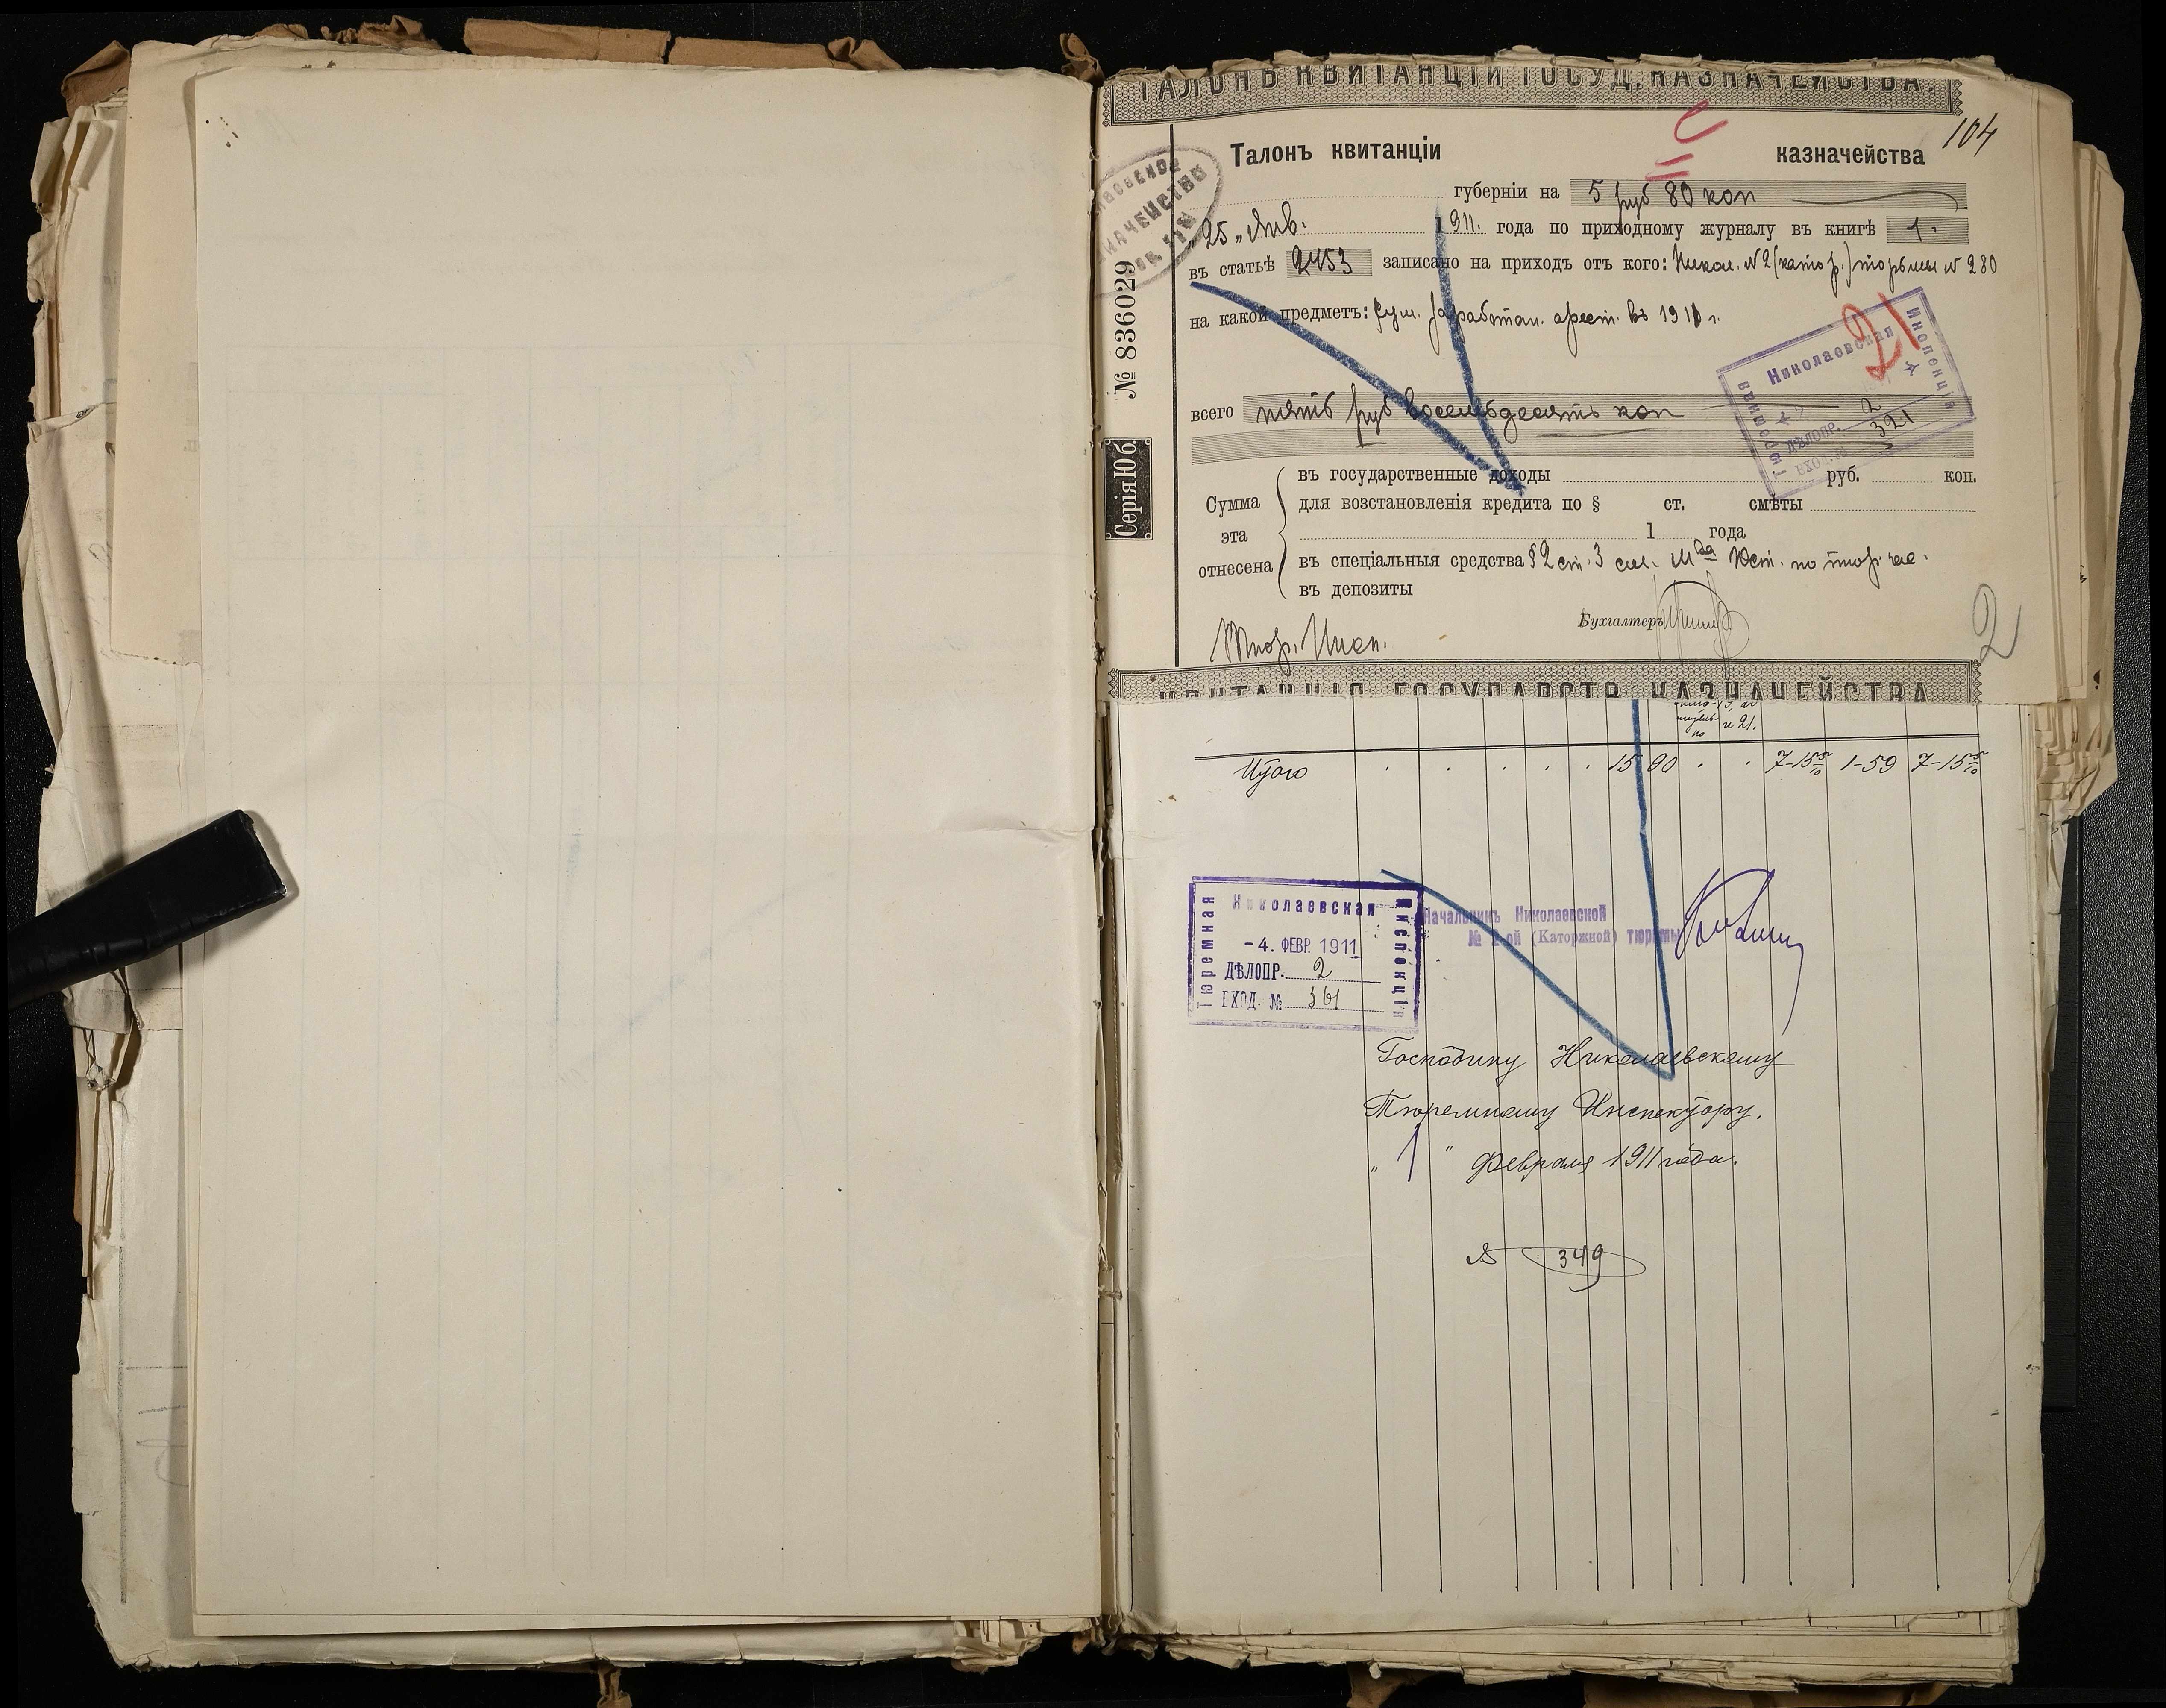 ТАЛОНЪ КВИТАНЦІИ ГОСУД. КАЗНАЧЕЙСТВА.
104
Талонъ квитанціи казначейства
губерніи на 5 руб 80 коп
"25" Янв. 1911. года по приходному журналу въ книгѣ 1.
въ статьѣ 2453 записано на приходъ отъ кого: Никол. № 2 (катор.) тюрьмы № 280
на какой предметъ: сум. заработан. арест. въ 1911 г.
21
Николаевская
Тюремная
Инспекція
ДѢЛОПР. 2
ВХОД. № 321
всего пять руб восемьдесятъ коп
№ 836029
Серія Юб.
въ государственные доходы руб. коп.
Сумма для возстановленія кредита по § ст. смѣты
эта 1 года
отнесена въ спеціальныя средства § 2 ст. 3 см. Мва Юст. по тюр. час.
въ депозиты
Бухгалтеръ
Тюр. Инсп.
2
КВИТАНЦІЯ ГОСУДАРСТВ. КАЗНАЧЕЙСТВА
и 21.
Итого . . . . . 15 90 . . 7-15 5/10 1-59 7-15 5/10
Николаевская
Тюремная
Инспекція
-4. ФЕВР. 1911
ДѢЛОПР. 2
ВХОД. № 361
Начальникъ Николаевской
№ 2-ой (Каторжной) тюрьмы
Господину Николаевскому
Тюремному Инспектору.
"1" февраля 1911 года.
№ 349